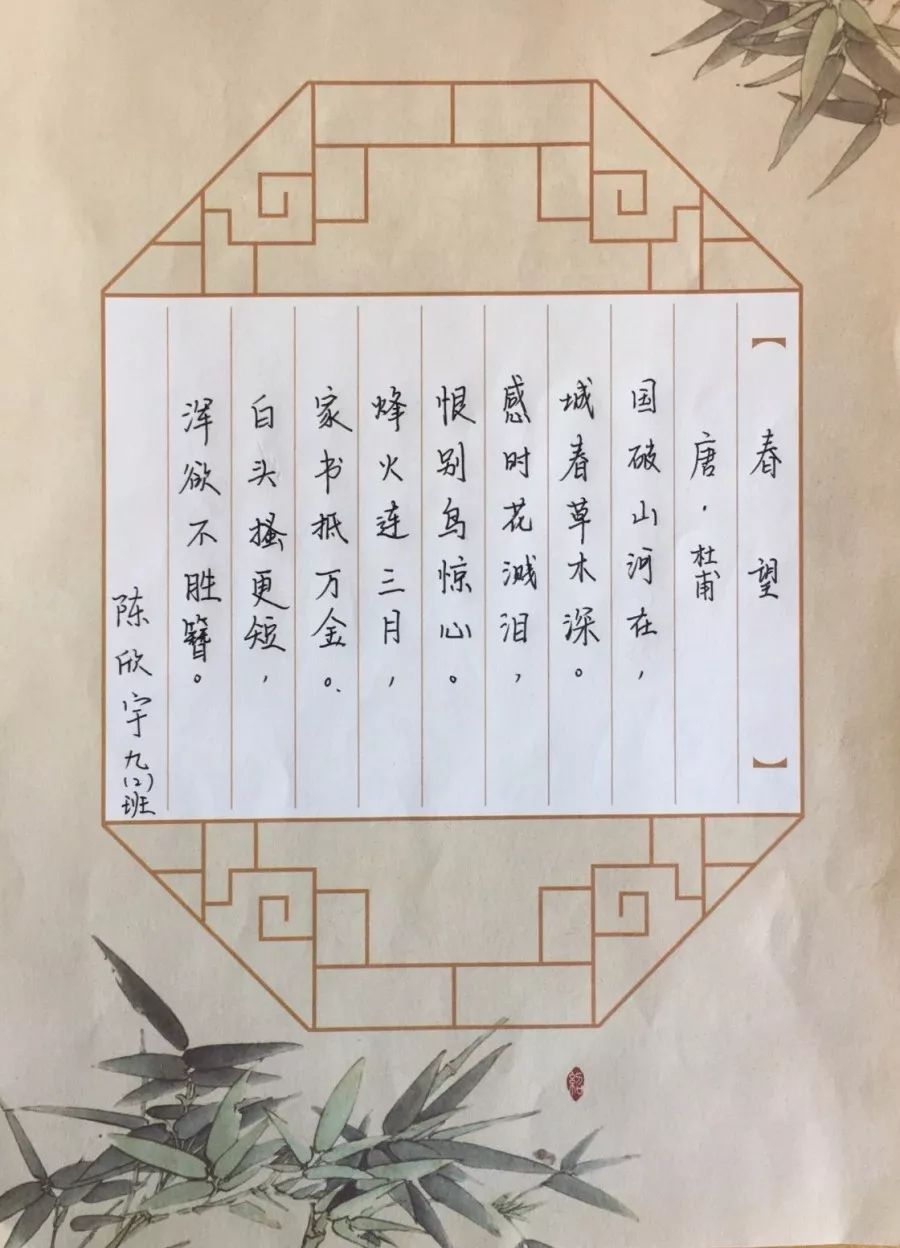 【春望】
唐·杜甫
国破山河在，
城春草木深。
感时花溅泪，
恨别鸟惊心。
烽火连三月，
家书抵万金。
白头搔更短，
浑欲不胜簪。
陈欣宇九(2)班